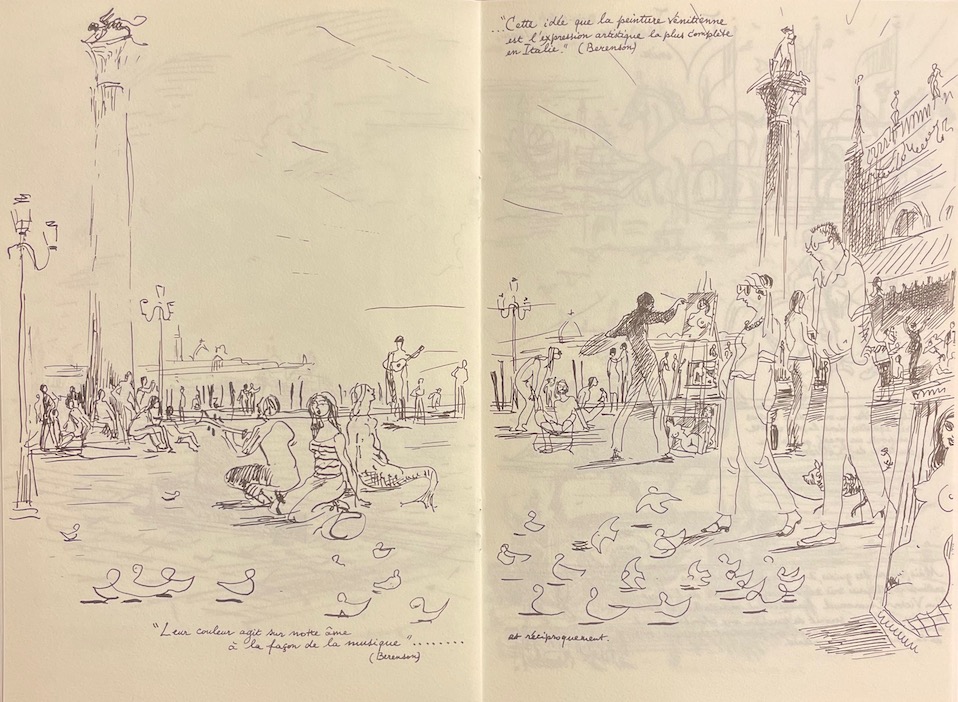 "Leur couleur agit sur notre âme
à la façon de la musique"........
(Berenson)
..."Cette idée que la peinture vénitienne
est l'expression artistique la plus complète
en Italie." (Berenson)
et réciproquement.